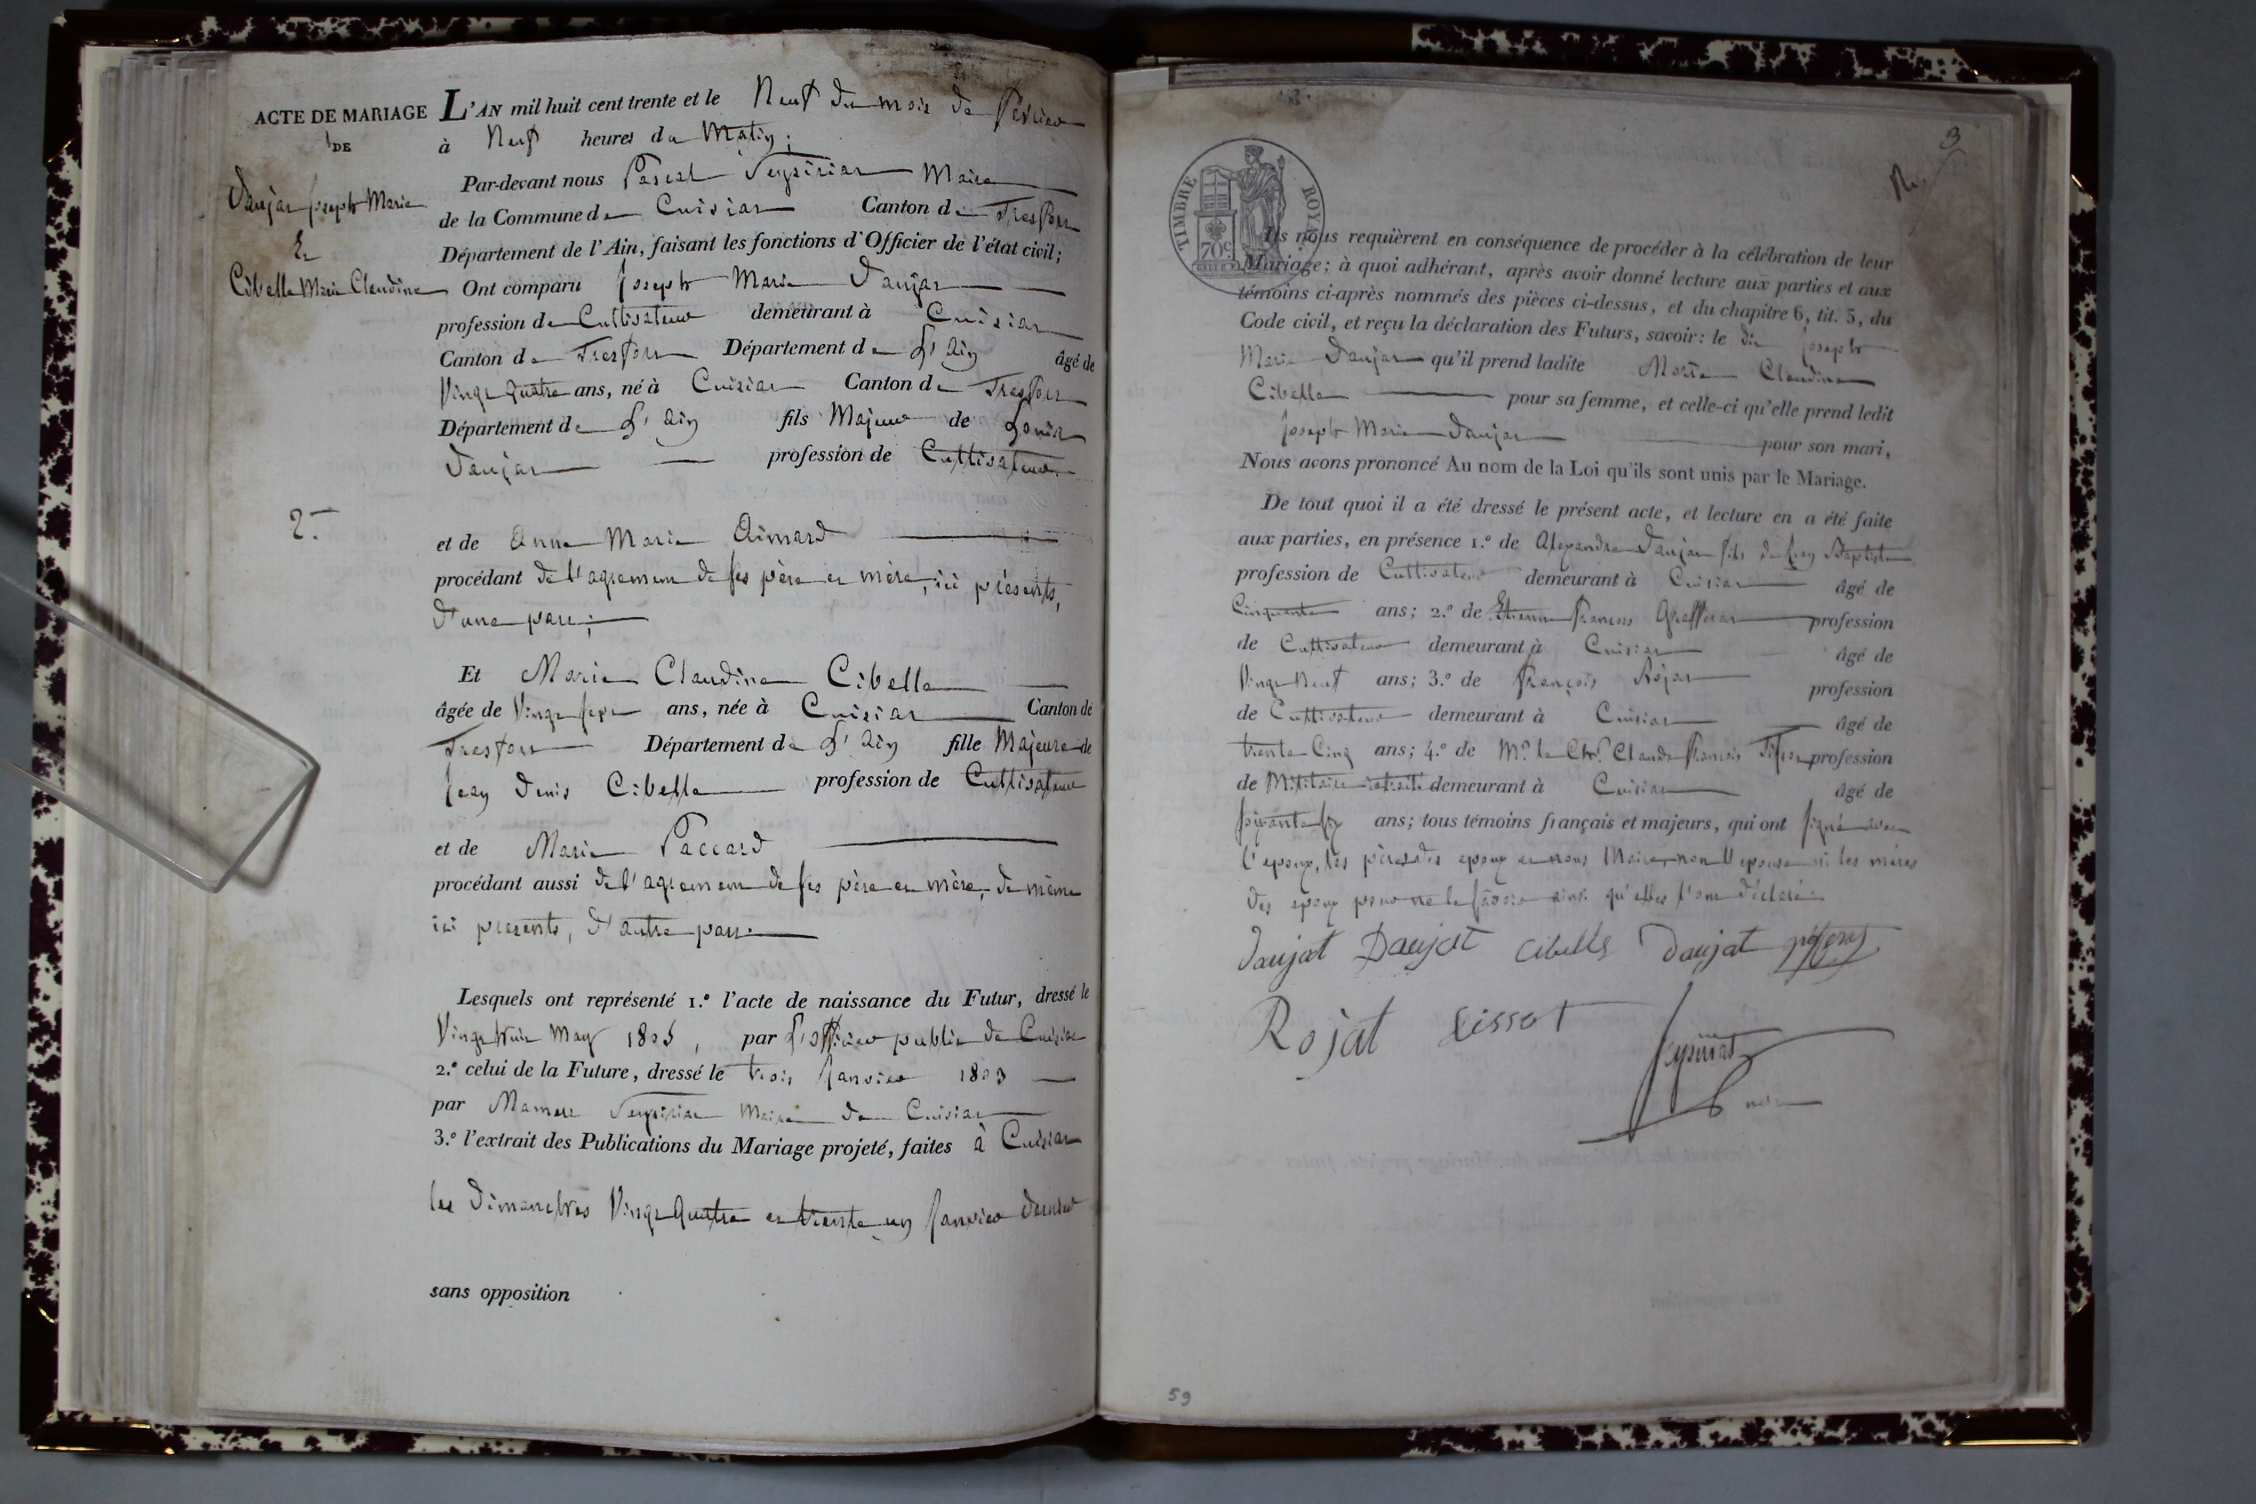 ACTE DE MARIAGE
DE
Daujat Joseph Marie
Et
Cibelle Marie Claudine
2.
L'AN mil huit cent trente et le Neuf du mois de Février
à Neuf heures du Matin;
Par-devant nous Pascal Seyssiat Maire
de la Commune de Cuisiat Canton de Treffort
Département de l'Ain, faisant les fonctions d'Officier de l'état civil;
Ont comparu Joseph Marie Daujat
profession de Cultivateur demeurant à Cuisiat
Canton de Treffort Département de L'Ain âgé de
Vingt quatre ans, né à Cuisiat Canton de Treffort
Département de L'Ain fils Majeur de Louis
Daujat profession de Cultivateur
et de Anne Marie Aimard
procédant de l'agrement de ses père et mère, ici présents,
d'une part;
Et Marie Claudine Cibelle
âgée de Vingt sept ans, née à Cuisiat Canton de
Treffort Département de L'Ain fille Majeure de
Jean Denis Cibelle profession de Cultivateur
et de Marie Paccard
procédant aussi de l'agrement de ses père et mère, de même
ici présents, d'autre part.
Lesquels ont représenté 1.º l'acte de naissance du Futur, dressé le
Vingt huit May 1805, par L'officier public de Cuisiat
2.º celui de la Future, dressé le trois Janvier 1803
par Mamert Maire de Cuisiat
3.º l'extrait des Publications du Mariage projeté, faites à Cuisiat
les Dimanches Vingt quatre et trente un Janvier dernier
sans opposition
3
TIMBRE ROYAL
70 c.
Ils nous requièrent en conséquence de procéder à la célébration de leur
Mariage; à quoi adhérant, après avoir donné lecture aux parties et aux
témoins ci-après nommés des pièces ci-dessus, et du chapitre 6, tit. 5, du
Code civil, et reçu la déclaration des Futurs, savoir: le dit Joseph
Marie Daujat qu'il prend ladite Marie Claudine
Cibelle pour sa femme, et celle-ci qu'elle prend ledit
Joseph Marie Daujat pour son mari,
Nous avons prononcé Au nom de la Loi qu'ils sont unis par le Mariage.
De tout quoi il a été dressé le présent acte, et lecture en a été faite
aux parties, en présence 1.º de Alexandre Daujat fils de Jean Baptiste
profession de Cultivateur demeurant à Cuisiat âgé de
Cinquante ans; 2.º de Etienne François profession
de Cultivateur demeurant à Cuisiat âgé de
Vingt Neuf ans; 3.º de François Rojat profession
de Cultivateur demeurant à Cuisiat âgé de
trente Cinq ans; 4.º de Mr. le Chr. Claude François profession
de Militaire retraité demeurant à Cuisiat âgé de
soixante six ans; tous témoins français et majeurs, qui ont signé avec
l'époux, les pères des époux et nous Maire, non l'épouse ni les mères
des époux pour ne le savoir ainsi qu'elles l'ont déclaré
Daujat Daujat Cibelle Daujat
Rojat
59